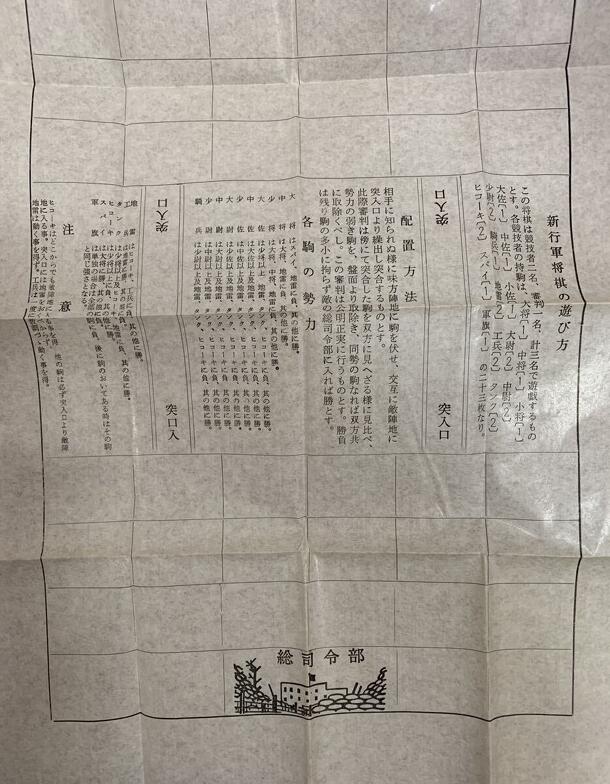 新行軍将棋の遊び方
この将棋は競技者二名、審判一名、計三名で遊戯するもの
とす。各競技者の持駒は、大将〔1〕 中将〔1〕 少将〔1〕
大佐〔1〕 中佐〔1〕 小佐〔1〕 大尉〔2〕 中尉〔2〕
少尉〔2〕 騎兵〔1〕 地雷〔2〕 工兵〔2〕 タンク〔2〕
ヒコーキ〔2〕 スパイ〔1〕 軍旗〔1〕 の二十三枚なり。
突入口
突入口
配置方法
相手に知られぬ様に味方陣地に駒を伏せ、交互に敵陣地に
突入口より繰出し突合するものとす。
此際審判は傍にて突合した駒を双方に見へざる様に見比べ、
勢力の弱き駒を、盤面より取除き、同勢の駒なれば双方共
に取除くべし。この審判は公明正実に行うものとす。勝負
は残り駒の多小に拘らず敵の総司令部に入れば勝とす。
各駒の勢力
大将はスパイ、地雷に負、其の他に勝。
中将は大将、地雷に負、其の他に勝。
少将は大将、中将、地雷に負、其の他に勝。
大佐は少将以上、地雷、タンク、ヒコーキに負、其の他に勝。
中佐は大佐以上、地雷、タンク、ヒコーキに負、其の他に勝。
少佐は中佐以上、地雷、タンク、ヒコーキに負、其の他に勝。
大尉は少佐以上及地雷、タンク、ヒコーキに負、其の他に勝。
中尉は大尉以上及地雷、タンク、ヒコーキに負、其の他に勝。
少尉は中尉以上及地雷、タンク、ヒコーキに負、其の他に勝。
騎兵は少尉以上及地雷、タンク、ヒコーキに負、其の他に勝。
突入口
突入口
地雷はヒコーキ、工兵に負、其の他に勝。
工兵は
タンクは少将以上、地雷、工兵に負、其の他に勝。
ヒコーキは少将以上に負、其の他に勝。
スパイは大将に勝、其の他に負。
軍旗は単独の場合は全部の駒に負、後に駒のおいてある時はその駒
と同じ強さとなる。
注意
ヒコーキはどこからでも敵陣地に 得、 他の駒は必ず突入口より敵陣
地に入る事。
地雷は動く事を得ず。工兵は 動く事を得。
総司令部